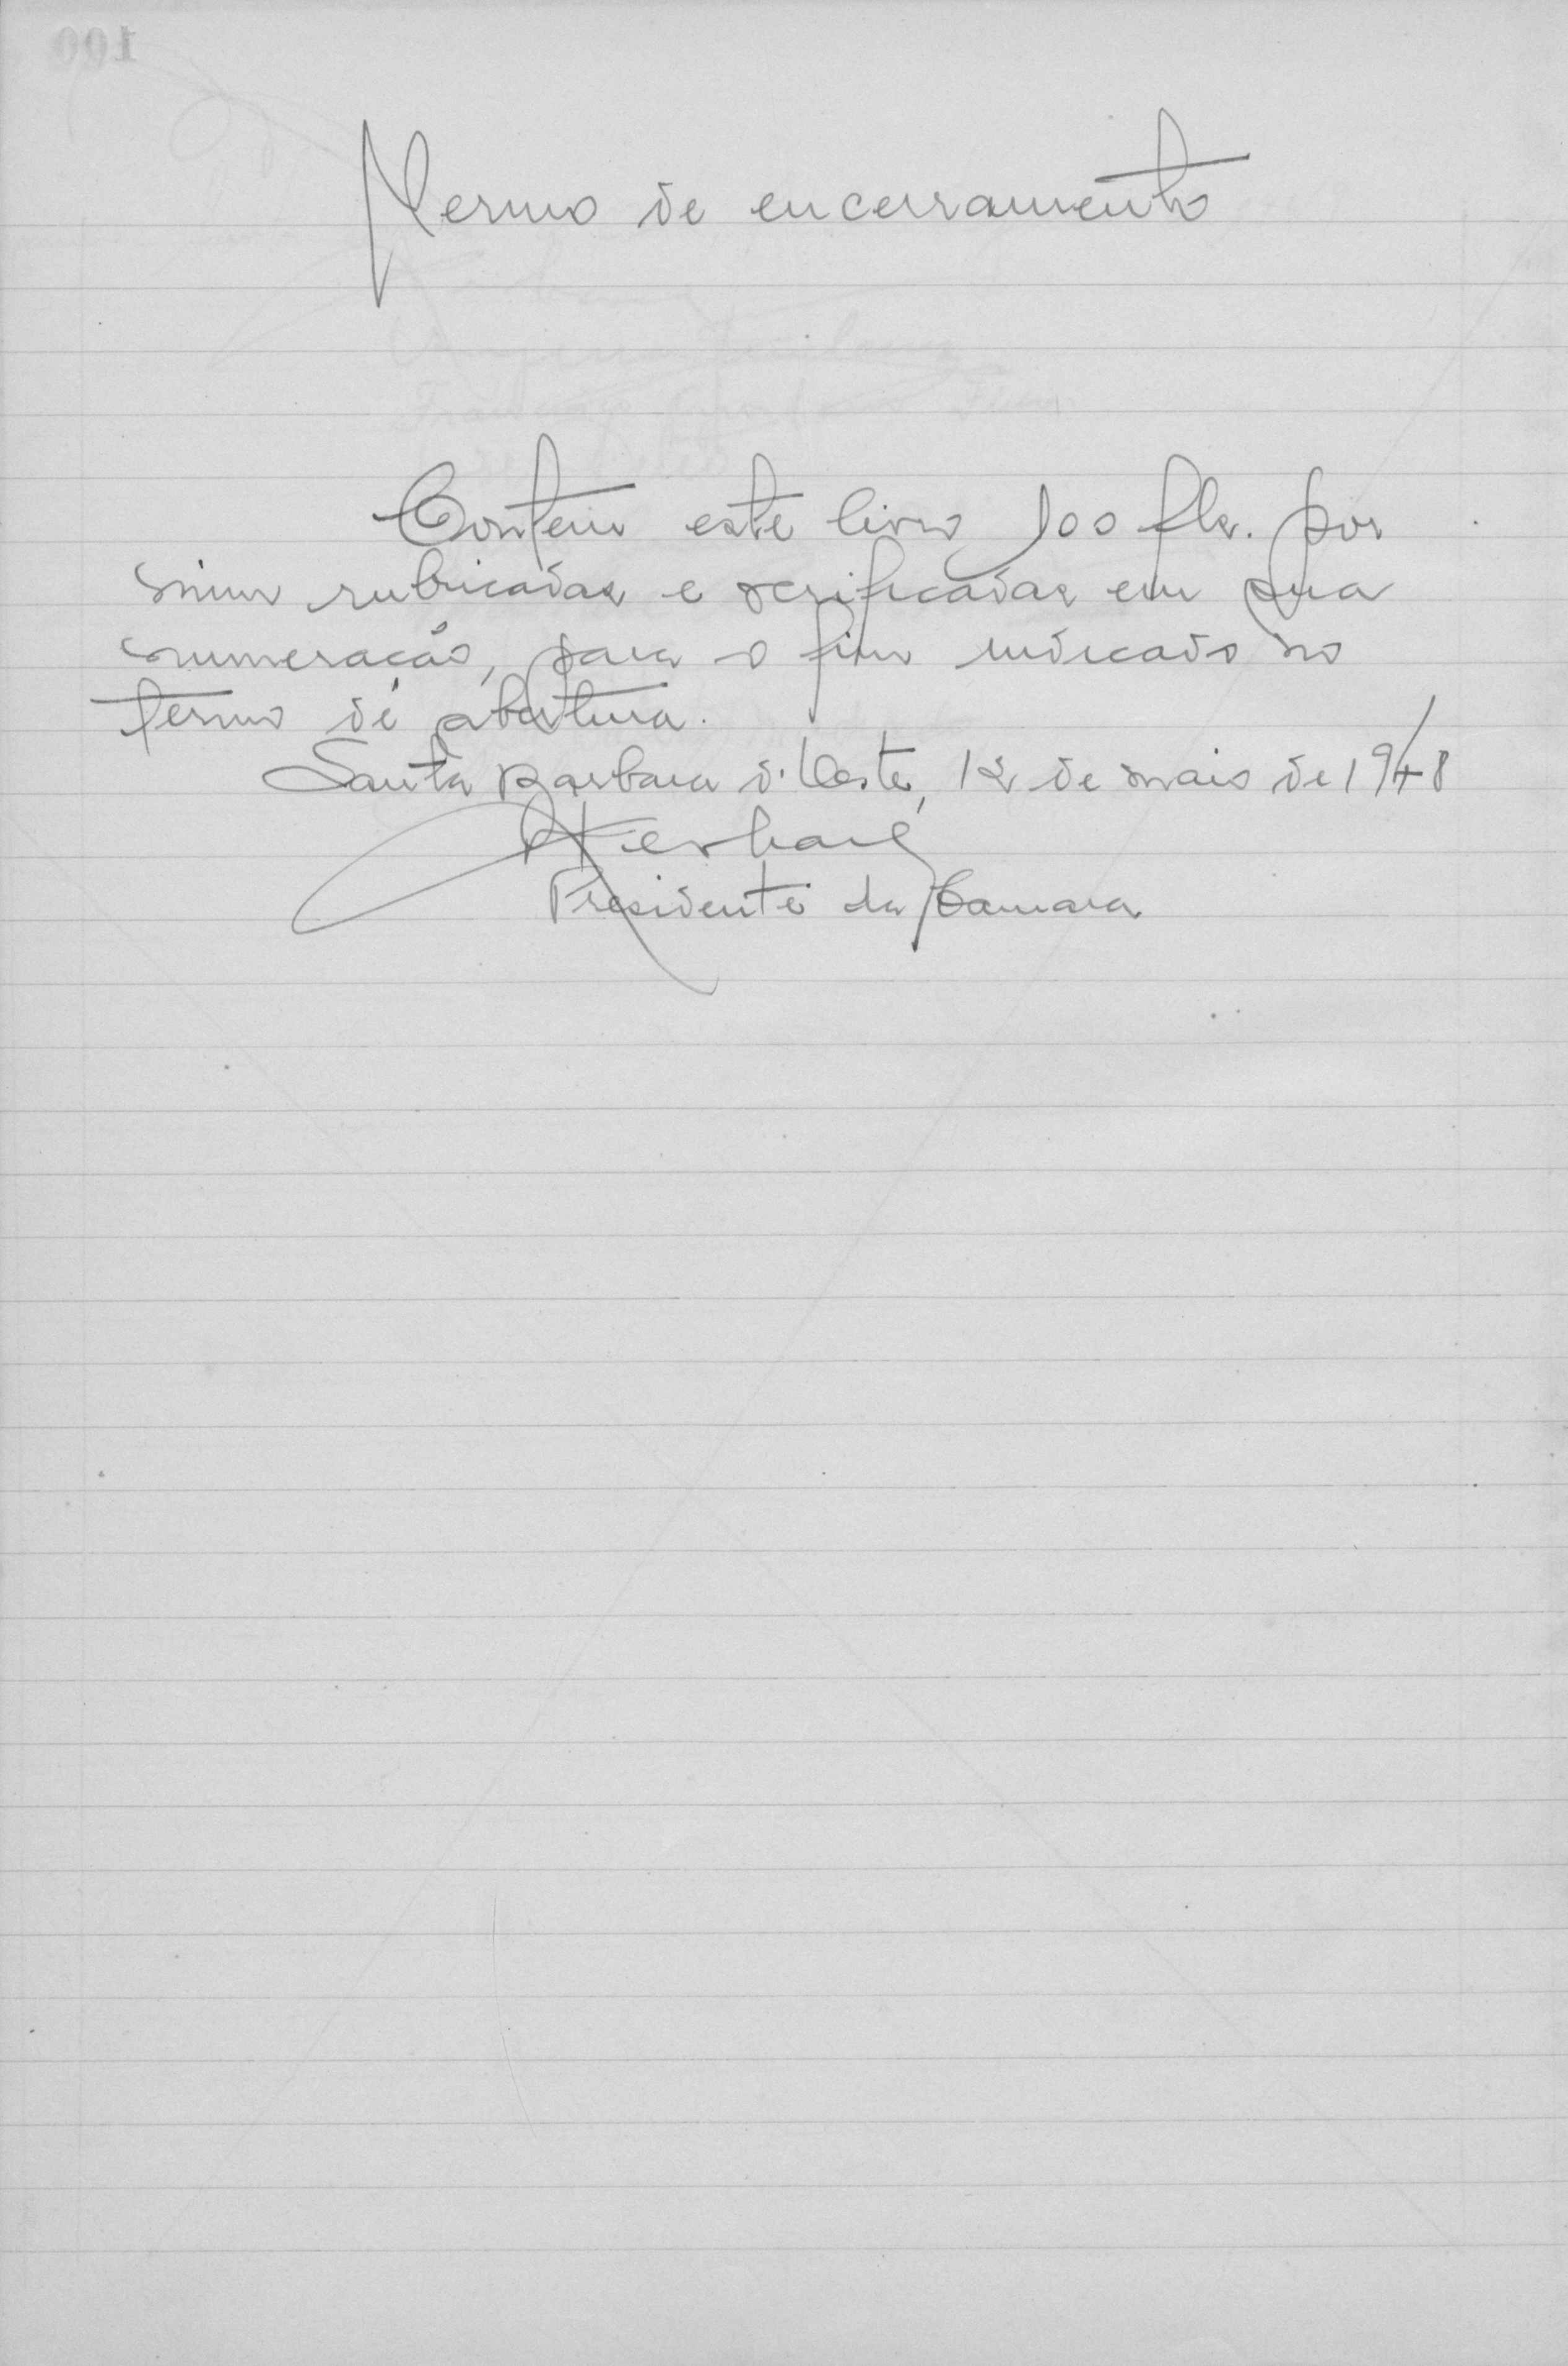 Termo de encerramento
Contem este livro 100 fls. por
mim rubricadas e verificadas em sua
numeração, para o fim indicado no
termo de abertura.
Santa Barbara d'Oeste, 12 de maio de 1948
Presidente da Camara